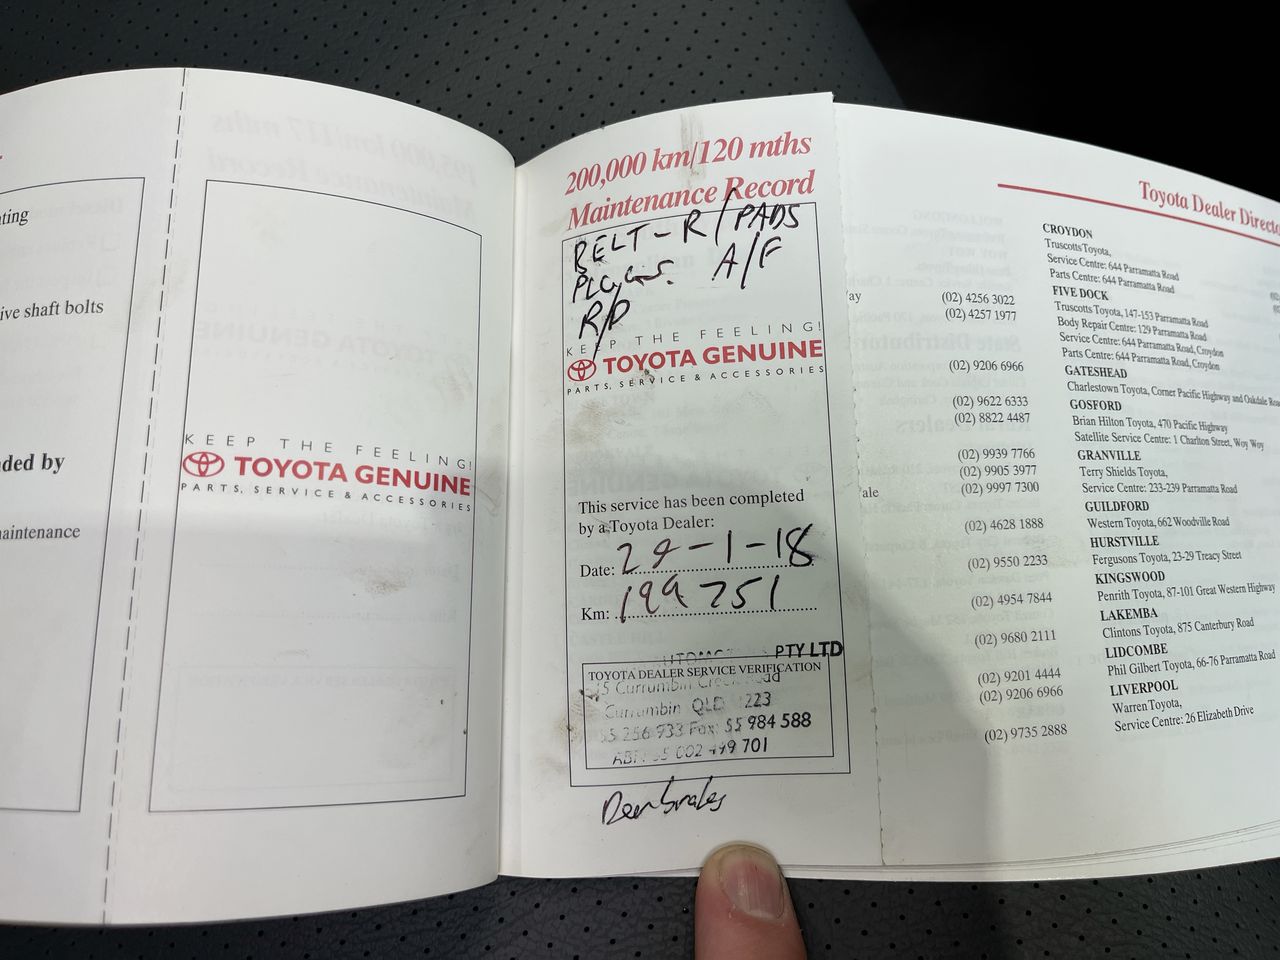 ating
ive shaft bolts
ded by
naintenance
KEEP THE FEELING!
TOYOTA GENUINE
PARTS, SERVICE & ACCESSORIES
200,000 km/120 mths
Maintenance Record
BELT - R/PADS
PLUGS. A/F
R/P
KEEP THE FEELING!
TOYOTA GENUINE
PARTS, SERVICE & ACCESSORIES
This service has been completed
by a Toyota Dealer:
Date: 29-1-18
Km: 199751
PTY LTD
TOYOTA DEALER SERVICE VERIFICATION
Currumbin Creek Road
Currumbin QLD
Fax: 55 984 588
701
Toyota Dealer Directo
ay (02) 4256 3022
(02) 4257 1977
(02) 9206 6966
(02) 9622 6333
(02) 8822 4487
(02) 9939 7766
(02) 9905 3977
ale (02) 9997 7300
(02) 4628 1888
(02) 9550 2233
(02) 4954 7844
(02) 9680 2111
(02) 9201 4444
(02) 9206 6966
(02) 9735 2888
CROYDON
Truscotts Toyota,
Service Centre: 644 Parramatta Road
Parts Centre: 644 Parramatta Road
FIVE DOCK
Truscotts Toyota, 147-153 Parramatta Road
Body Repair Centre: 129 Parramatta Road
Service Centre: 644 Parramatta Road, Croydon
Parts Centre: 644 Parramatta Road, Croydon
GATESHEAD
Charlestown Toyota, Corner Pacific Highway and Oakdale Roa
GOSFORD
Brian Hilton Toyota, 470 Pacific Highway
Satellite Service Centre: 1 Charlton Street, Woy Woy
GRANVILLE
Terry Shields Toyota,
Service Centre: 233-239 Parramatta Road
GUILDFORD
Western Toyota, 662 Woodville Road
HURSTVILLE
Fergusons Toyota, 23-29 Treacy Street
KINGSWOOD
Penrith Toyota, 87-101 Great Western Highway
LAKEMBA
Clintons Toyota, 875 Canterbury Road
LIDCOMBE
Phil Gilbert Toyota, 66-76 Parramatta Road
LIVERPOOL
Warren Toyota,
Service Centre: 26 Elizabeth Drive